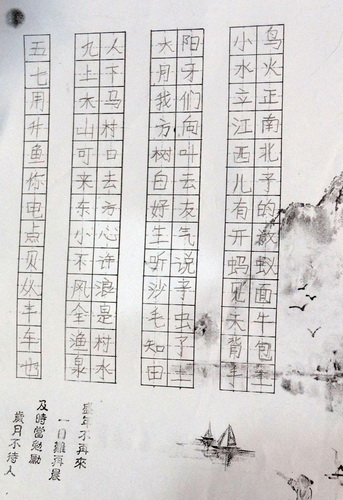 鸟火正南北子的蚁面牛包车
小水立江西儿有开蚂见天背手
阳牙们向叫去友气说子虫子土
大月我方树白好生听沙毛知由
人下马村口去方心许浪是村水
九土木山可来东小不风全渔泉
五七用井鱼你电点贝从丰车也
盛年不再來
一日難再晨
及時當勉勵
歲月不待人